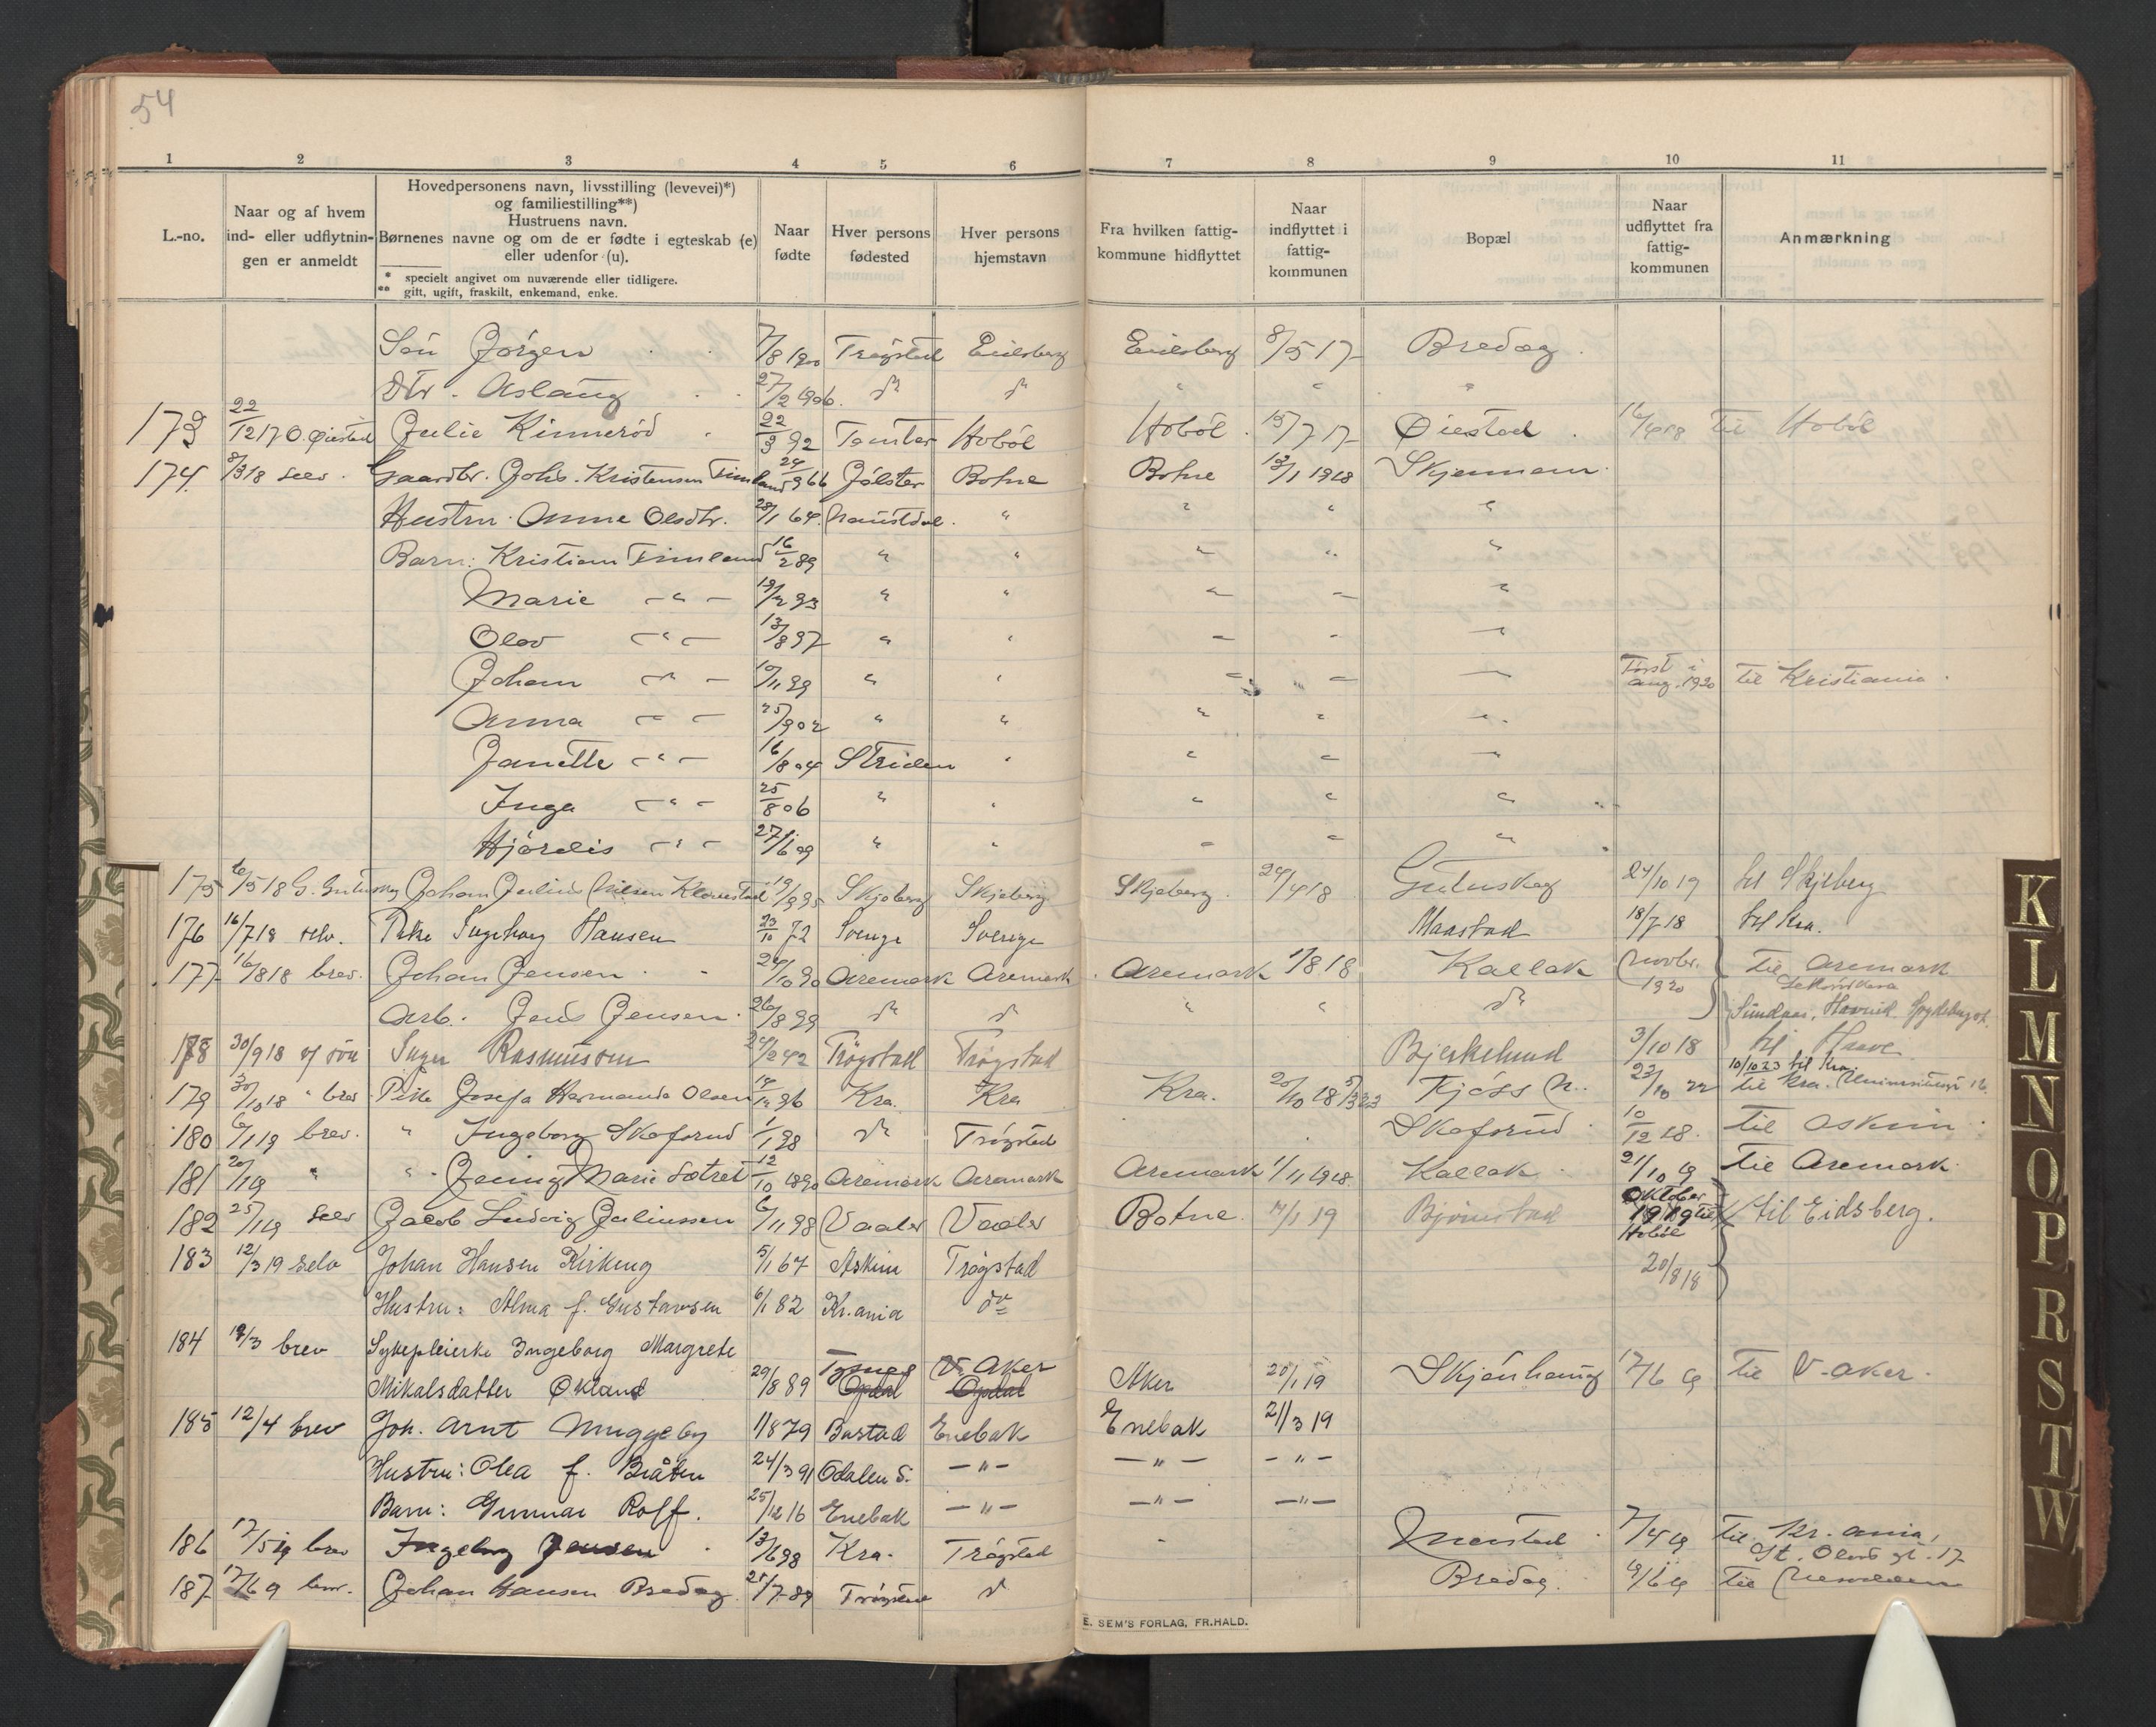 54
1 2 3 4 5 6 7 8 9 10 11
L.-no.
Naar og af hvem
ind- eller udflytnin-
gen er anmeldt
Hovedpersonens navn, livsstilling (levevei)*)
og familiestilling**)
Hustruens navn.
Børnenes navne og om de er fødte i egteskab (e)
eller udenfor (u).
* specielt angivet om nuværende eller tidligere.
** gift, ugift, fraskilt, enkemand, enke.
Naar
fødte
Hver persons
fødested
Hver persons
hjemstavn
Fra hvilken fattig-
kommune hidflyttet
Naar
indflyttet i
fattig-
kommunen
Bopæl
Naar
udflyttet fra
fattig-
kommunen
Anmærkning
Sön Jörgen 7/8 1900 Trøgstad Eidsberg Eidsberg 8/5 17 Bredag
Dtr. Aslaug 27/2 1906 do do " " "
173 22/12 17 O. Øiestad Julie Kinneröd 22/3 92 Tomter Hobøl Hobøl 15/7 17 Øiestad 16/4 18 til Hobøl
174 8/3 18 selv Gaardbr. Johs. Kristensen Timland 24/3 66 Jölster Botne Botne 13/1 1918 Skjennem
Hustru Anne Olsdtr. 28/1 64 Naustdal " " " "
Barn: Kristian Timland 16/2 89 " " " " "
Marie - " - 19/2 93 " " " " "
Olav - " - 13/8 97 " " " " "
Johan - " - 10/11 99 " " " " " Först i aug. 1920 til Kristiania
Anna - " - 25/9 02 " " " " "
Janette - " - 16/8 04 Striden " " " "
Inga - " - 25/8 06 " " " " "
Hjördis - " - 27/6 09 " " " " "
175 6/5 18 G. Gutuskog Johan Julius Nilsen Klavestad 19/9 95 Skjeberg Skjeberg Skjeberg 24/4 18 Gutuskog 24/10 19 til Skjeberg
176 16/7 18 selv. Pike Ingeborg Hansen 23/10 72 Sverige Sverige Maastad 18/7 18 til Kra.
177 16/8 18 brev. Johan Jensen 24/10 90 Aremark Aremark Aremark 1/8 18 Kallak Novbr. 1920 Til Aremark
Arb. Jens Jensen 26/8 99 do do " " do Sundaas, Hovind Spydeberg
178 30/9 18 Inger Rasmussen 24/2 42 Trøgstad Trøgstad Bjerkelund 3/10 18 til
179 30/10 18 brev Pike Josefa Hermanda Olsen 96 Kra. Kra Kra. 20/10 18 Kjöss N. 23/10 22 10/10 23 til Kra. til Kra.
180 6/1 19 brev. " Ingeborg Skofsrud 1/1 98 do Trøgstad Skofsrud 10/12 18. Til Askim
181 20/1 19 " " Jenny Marie Sætret 12/10 1890 Aremark Aremark Aremark 1/11 1918 Kallak 21/10 19 Til Aremark
182 25/1 19 Selv Jacob Ludvig Juliussen 6/11 98 Vaaler Vaaler Botne 14/1 19 Björnstad Oktober 1919 til Hobøl til Eidsberg.
183 12/3 19 selv Johan Hansen Kirkeng 5/1 67 Askim Trøgstad 20/8 18
Hustru: Alma f. Gustavsen 6/1 82 Kr.ania do
184 18/3 brev Sykepleierske Ingeborg Margrete
Mikalsdatter Økland 29/8 89 Tysnes Opdal V. Aker Opdal Aker 20/1 19 Skjönhaug 17/6 19 Til V-Aker
185 12/4 brev Joh. Arnt Muggeby 1/1 879 Bastad Enebak Enebak 21/3 19
Hustru: Olea f. Bråten 24/3 91 Odalen S. - " - - " - - " -
Barn: Gunnar Rolf. 25/12 16 Enebak - " - - " - - " -
186 17/5 19 brev Ingeborg Jensen 13/6 98 Kra. Trøgstad Mærstad 7/4 19 Til Kr. ania, St. Olavs gt. 17
187 17/6 9 brev. Johan Hansen Bredag 25/7 89 Trøgstad do Bredag 19/6 19 Til
E. SEM'S FORLAG, FR.HALD.
K
L
M
N
O
P
R
S
T
W